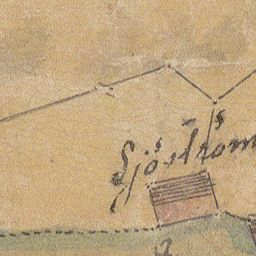 Sjöström